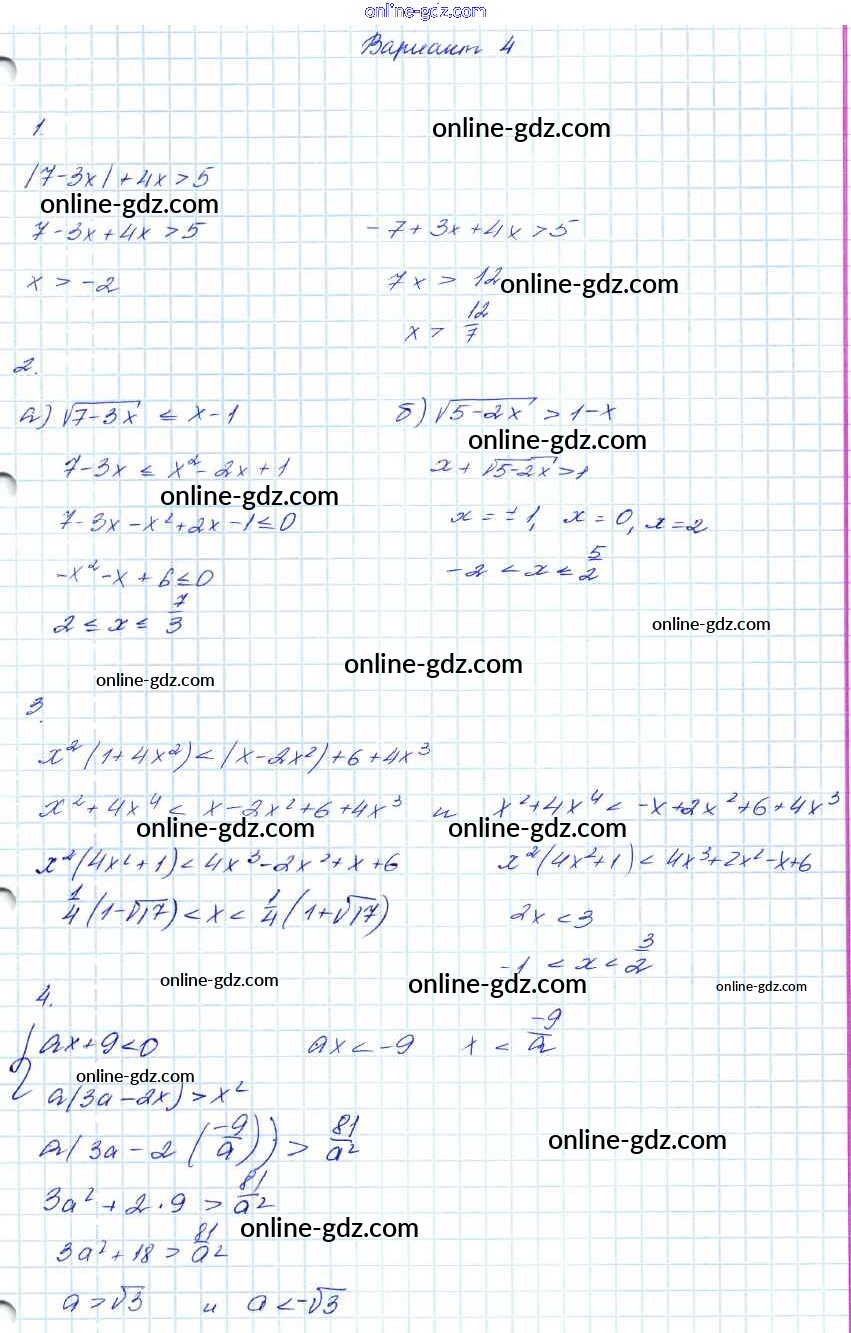 online-gdz.com
Вариант 4
1.
online-gdz.com
|7-3x|+4x>5
online-gdz.com
7-3x+4x>5 -7+3x+4x>5
x>-2 7x>12
online-gdz.com
x>12/7
2.
а) √(7-3x) ≤ x-1 б) √(5-2x) > 1-x
online-gdz.com
7-3x ≤ x²-2x+1 x+√(5-2x)>1
online-gdz.com
7-3x-x²+2x-1≤0 x=±1, x=0, x=2
-x²-x+6≤0 -2<x≤5/2
2≤x≤7/3
online-gdz.com
online-gdz.com
online-gdz.com
3.
x²(1+4x²)<|x-2x²)+6+4x³
x²+4x⁴<x-2x²+6+4x³ и x²+4x⁴<-x+2x²+6+4x³
online-gdz.com online-gdz.com
x²(4x²+1)<4x³-2x²+x+6 x²(4x²+1)<4x³+2x²-x+6
1/4(1-√17)<x<1/4(1+√17) 2x<3
-1<x<3/2
online-gdz.com online-gdz.com online-gdz.com
4.
{ax+9<0 ax<-9 x<-9/a
online-gdz.com
a(3a-2x)>x²
a(3a-2(-9/a))>81/a²
online-gdz.com
3a²+2·9>81/a²
online-gdz.com
3a²+18>81/a²
a>√3 и a<-√3